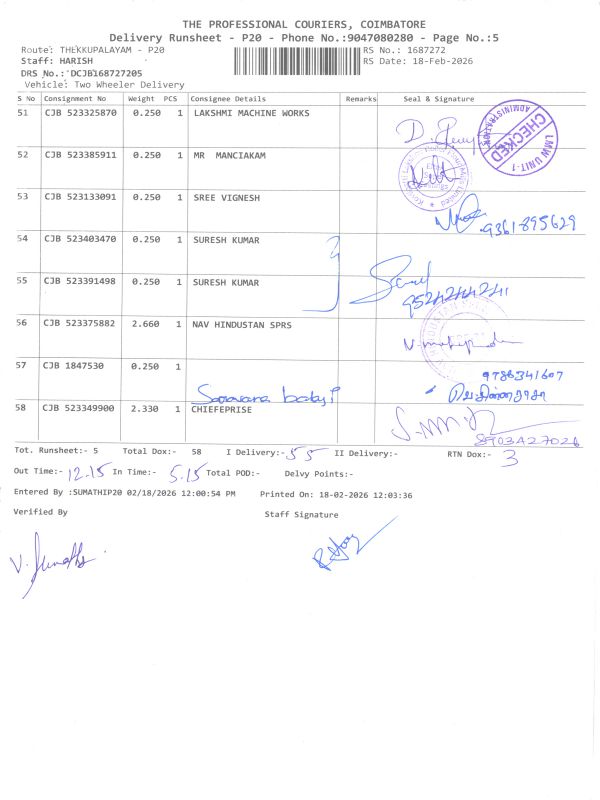 THE PROFESSIONAL COURIERS, COIMBATORE
Delivery Runsheet - P20 - Phone No.:9047080280 - Page No.:5
Route: THEKKUPALAYAM - P20
RS No.: 1687272
Staff: HARISH
RS Date: 18-Feb-2026
DRS No.: DCJB168727205
Vehicle: Two Wheeler Delivery
S No Consignment No Weight PCS Consignee Details Remarks Seal & Signature
51 CJB 523325870 0.250 1 LAKSHMI MACHINE WORKS
ADMINISTRATION
CHECKED
LMW UNIT-1
52 CJB 523385911 0.250 1 MR MANCIAKAM
53 CJB 523133091 0.250 1 SREE VIGNESH
9361895629
54 CJB 523403470 0.250 1 SURESH KUMAR
55 CJB 523391498 0.250 1 SURESH KUMAR
9524244241
56 CJB 523375882 2.660 1 NAV HINDUSTAN SPRS
57 CJB 1847530 0.250 1
9788341607
58 CJB 523349900 2.330 1 CHIEFEPRISE
8903A27026
Tot. Runsheet:- 5 Total Dox:- 58 I Delivery:- 55 II Delivery:- RTN Dox:- 3
Out Time:- 12.15 In Time:- 5.15 Total POD:- Delvy Points:-
Entered By :SUMATHIP20 02/18/2026 12:00:54 PM Printed On: 18-02-2026 12:03:36
Verified By Staff Signature